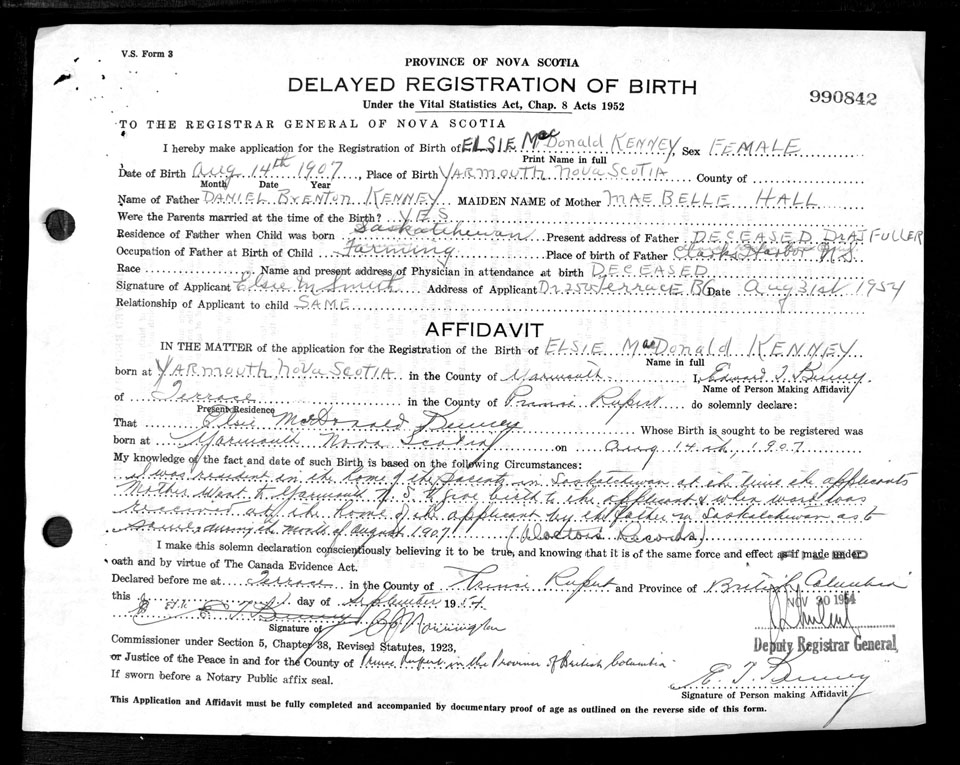 V.S. Form 3
PROVINCE OF NOVA SCOTIA
DELAYED REGISTRATION OF BIRTH
990842
Under the Vital Statistics Act, Chap. 8 Acts 1952
TO THE REGISTRAR GENERAL OF NOVA SCOTIA
I hereby make application for the Registration of Birth of ELSIE MacDonald KENNEY Sex FEMALE
Print Name in full
Date of Birth Aug 14th 1907, Place of Birth YARMOUTH NOVA SCOTIA County of
Month Date Year
Name of Father DANIEL Brenton KENNEY MAIDEN NAME of Mother MAE BELLE HALL
Were the Parents married at the time of the Birth? YES
Residence of Father when Child was born Saskatchewan Present address of Father DECEASED FULLER
Occupation of Father at Birth of Child Farming Place of birth of Father Clarks Harbor N.S.
Race Name and present address of Physician in attendance at birth DECEASED
Signature of Applicant Elsie M Address of Applicant Terrace BC Date Aug 31st 1954
Relationship of Applicant to child SAME
AFFIDAVIT
IN THE MATTER of the application for the Registration of the Birth of ELSIE MacDonald KENNEY
Name in full
born at YARMOUTH NOVA SCOTIA in the County of Yarmouth I,
Name of Person Making Affidavit
of Terrace in the County of Prince Rupert do solemnly declare:
Present Residence
That Elsie McDonald Kenney Whose Birth is sought to be registered was
born at Yarmouth Nova Scotia on Aug 14th, 1907
My knowledge of the fact and date of such Birth is based on the following Circumstances:
I was resident in the home of the parents in Saskatchewan at the time the applicants
Mother went to Yarmouth N.S. to give birth to the applicant & when word was
received at the home of the applicant by the father in Saskatchewan as to
same during the month of August 1907 (Doctors Records)
I make this solemn declaration conscientiously believing it to be true, and knowing that it is of the same force and effect as if made under
oath and by virtue of The Canada Evidence Act.
Declared before me at Terrace in the County of Prince Rupert and Province of British Columbia
this day of September 1954
NOV 30 1954
Signature of
Deputy Registrar General
Commissioner under Section 5, Chapter 38, Revised Statutes, 1923,
or Justice of the Peace in and for the County of Prince Rupert in the Province of British Columbia
If sworn before a Notary Public affix seal.
Signature of Person making Affidavit
This Application and Affidavit must be fully completed and accompanied by documentary proof of age as outlined on the reverse side of this form.